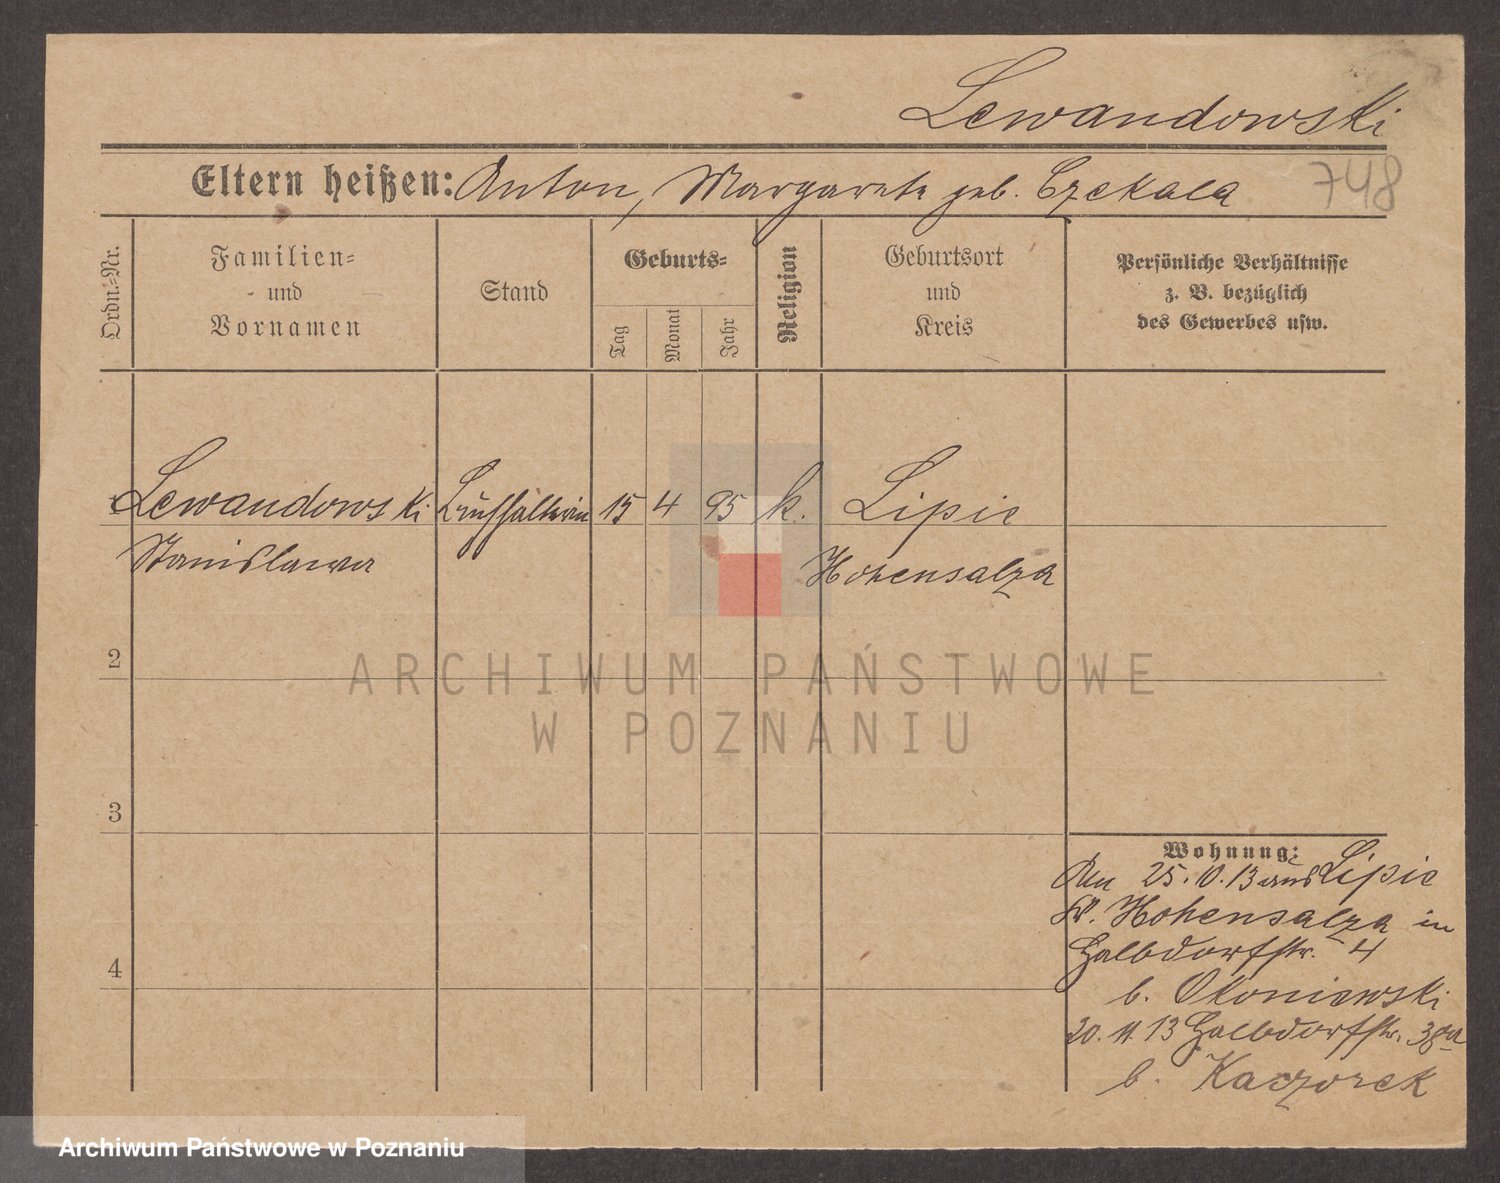 Lewandowski
Eltern heißen: Anton, Margarete geb. Czekala 748
Ordn.=Nr.
Familien=
und
Vornamen
Stand
Geburts=
Tag
Monat
Jahr
Religion
Geburtsort
und
Kreis
Persönliche Verhältnisse
z. B. bezüglich
des Gewerbes usw.
1 Lewandowski Buchhalterin 15 4 95 k. Lipie
Stanislawa Hohensalza
2
ARCHIWUM PAŃSTWOWE
W POZNANIU
3
Wohnung:
Am 25.10.13 aus Lipie
Kr. Hohensalza in
Halbdorfstr. 4
b. Okoniewski
20.11.13 Halbdorfstr. 38a
b. Kaczorek
4
Archiwum Państwowe w Poznaniu